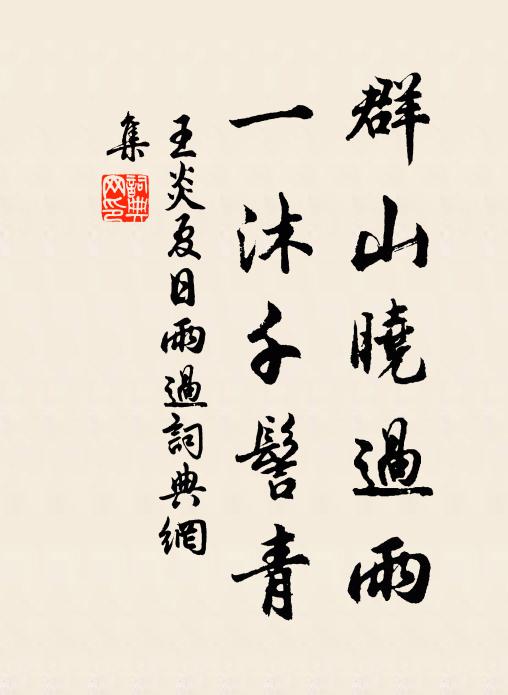 群山曉過雨
一沐千髻青
王炎夏日雨過詞典網
集
詞典
网印